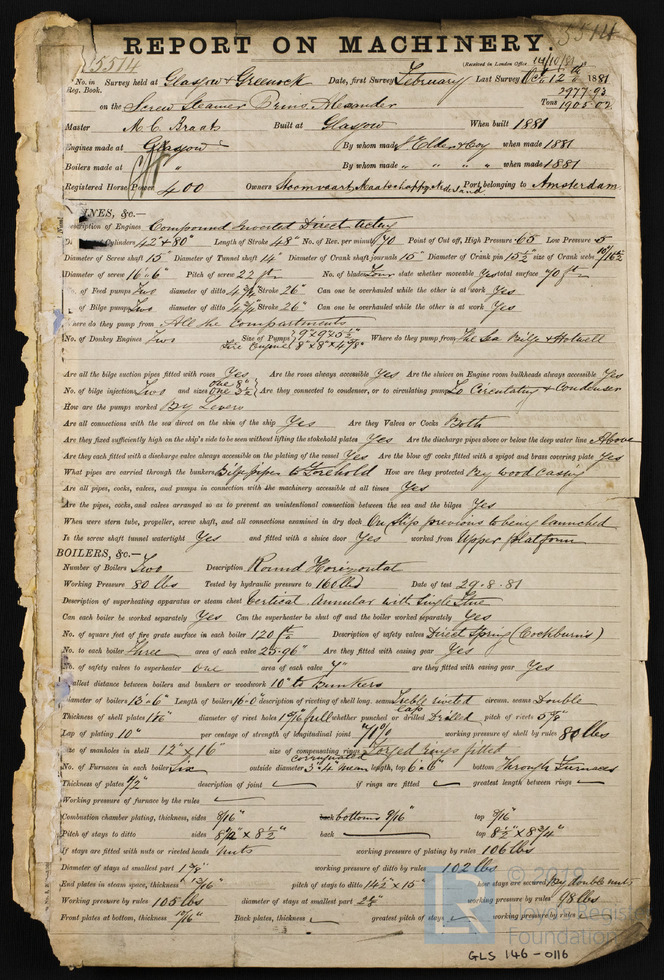 5514
5514
REPORT ON MACHINERY.
(Received in London Office, 14/10/81
No. in Survey held at Glasgow & Greenock Date, first Survey February Last Survey Oct 12th 1881
Reg. Book.
2977.93
on the Screw Steamer Prins Alexander Tons 1905.02
Master Built at Glasgow When built 1881
Engines made at Glasgow By whom made J Elder & Coy when made 1881
Boilers made at " By whom made " " " " when made 1881
Registered Horse Power 400 Owners Stoomvaart Maatschappy Nederland Port belonging to Amsterdam
INES, &c.—
escription of Engines Compound Inverted Direct Acting
Cylinders 42" & 80" Length of Stroke 48" No. of Rev. per minute 70 Point of Cut off, High Pressure .65 Low Pressure .5
Diameter of Screw shaft 15" Diameter of Tunnel shaft 14" Diameter of Crank shaft journals 15" Diameter of Crank pin 15½" size of Crank webs
Diameter of screw 16'-6" Pitch of screw 22 ft No. of blades Four state whether moveable Yes total surface 70 ft
of Feed pumps Two diameter of ditto 4¾" Stroke 26" Can one be overhauled while the other is at work Yes
of Bilge pumps Two diameter of ditto 4¾" Stroke 26" Can one be overhauled while the other is at work Yes
ere do they pump from All the Compartments
No. of Donkey Engines Two Size of Pumps Where do they pump from The Sea Bilge & Hotwell
Fire Engine
Are all the bilge suction pipes fitted with roses Yes Are the roses always accessible Yes Are the sluices on Engine room bulkheads always accessible Yes
No. of bilge injections Two and sizes one 8" one 3½" Are they connected to condenser, or to circulating pump To Circulating & Condenser
How are the pumps worked By Levers
Are all connections with the sea direct on the skin of the ship Yes Are they Valves or Cocks Both
Are they fixed sufficiently high on the ship's side to be seen without lifting the stokehold plates Yes Are the discharge pipes above or below the deep water line Above
Are they each fitted with a discharge valve always accessible on the plating of the vessel Yes Are the blow off cocks fitted with a spigot and brass covering plate Yes
What pipes are carried through the bunkers Bilge pipes to Forehold How are they protected By wood Casing
Are all pipes, cocks, valves, and pumps in connection with the machinery accessible at all times Yes
Are the pipes, cocks, and valves arranged so as to prevent an unintentional connection between the sea and the bilges Yes
When were stern tube, propeller, screw shaft, and all connections examined in dry dock On Ship previous to being launched
Is the screw shaft tunnel watertight Yes and fitted with a sluice door Yes worked from Upper platform
BOILERS, &c.—
Number of Boilers Two Description Round Horizontal
Working Pressure 80 lbs Tested by hydraulic pressure to 160 lbs Date of test 29.8.81
Description of superheating apparatus or steam chest Vertical Annular with Single Flue
Can each boiler be worked separately Yes Can the superheater be shut off and the boiler worked separately Yes
No. of square feet of fire grate surface in each boiler 120 ft² Description of safety valves Direct Spring (Cockburn's)
No. to each boiler Three area of each valve 25.96" Are they fitted with easing gear Yes
No. of safety valves to superheater one area of each valve 7" are they fitted with easing gear Yes
mallest distance between boilers and bunkers or woodwork 10" to Bunkers
Diameter of boilers 13'-6" Length of boilers 16'-0" description of riveting of shell long. seams Treble riveted lap circum. seams Double
Thickness of shell plates diameter of rivet holes full whether punched or drilled Drilled pitch of rivets
Lap of plating 10" per centage of strength of longitudinal joint working pressure of shell by rules 80 lbs
Size of manholes in shell 12" × 16" size of compensating rings Forged rings fitted
No. of Furnaces in each boiler Six outside diameter corrugated 3'-4" mean length, top 6'-6" bottom Through Furnaces
Thickness of plates ½" description of joint ✓ if rings are fitted ✓ greatest length between rings ✓
Working pressure of furnace by the rules ✓
Combustion chamber plating, thickness, sides 9/16" back bottoms 9/16" top 9/16"
Pitch of stays to ditto sides 8½" × 8½" back ✓ top 8½" × 8¾"
If stays are fitted with nuts or riveted heads nuts working pressure of plating by rules 106 lbs
Diameter of stays at smallest part 1⅜" working pressure of ditto by rules 102 lbs
End plates in steam space, thickness 13/16" pitch of stays to ditto 14½" × 15" stays are secured By double nuts
Working pressure by rules 105 lbs diameter of stays at smallest part working pressure by rules 98 lbs
Front plates at bottom, thickness Back plates, thickness ✓ greatest pitch of stays ✓ working pressure by rules ✓
© 2019
LR Lloyd's Register
Foundation
GLS 146-0116